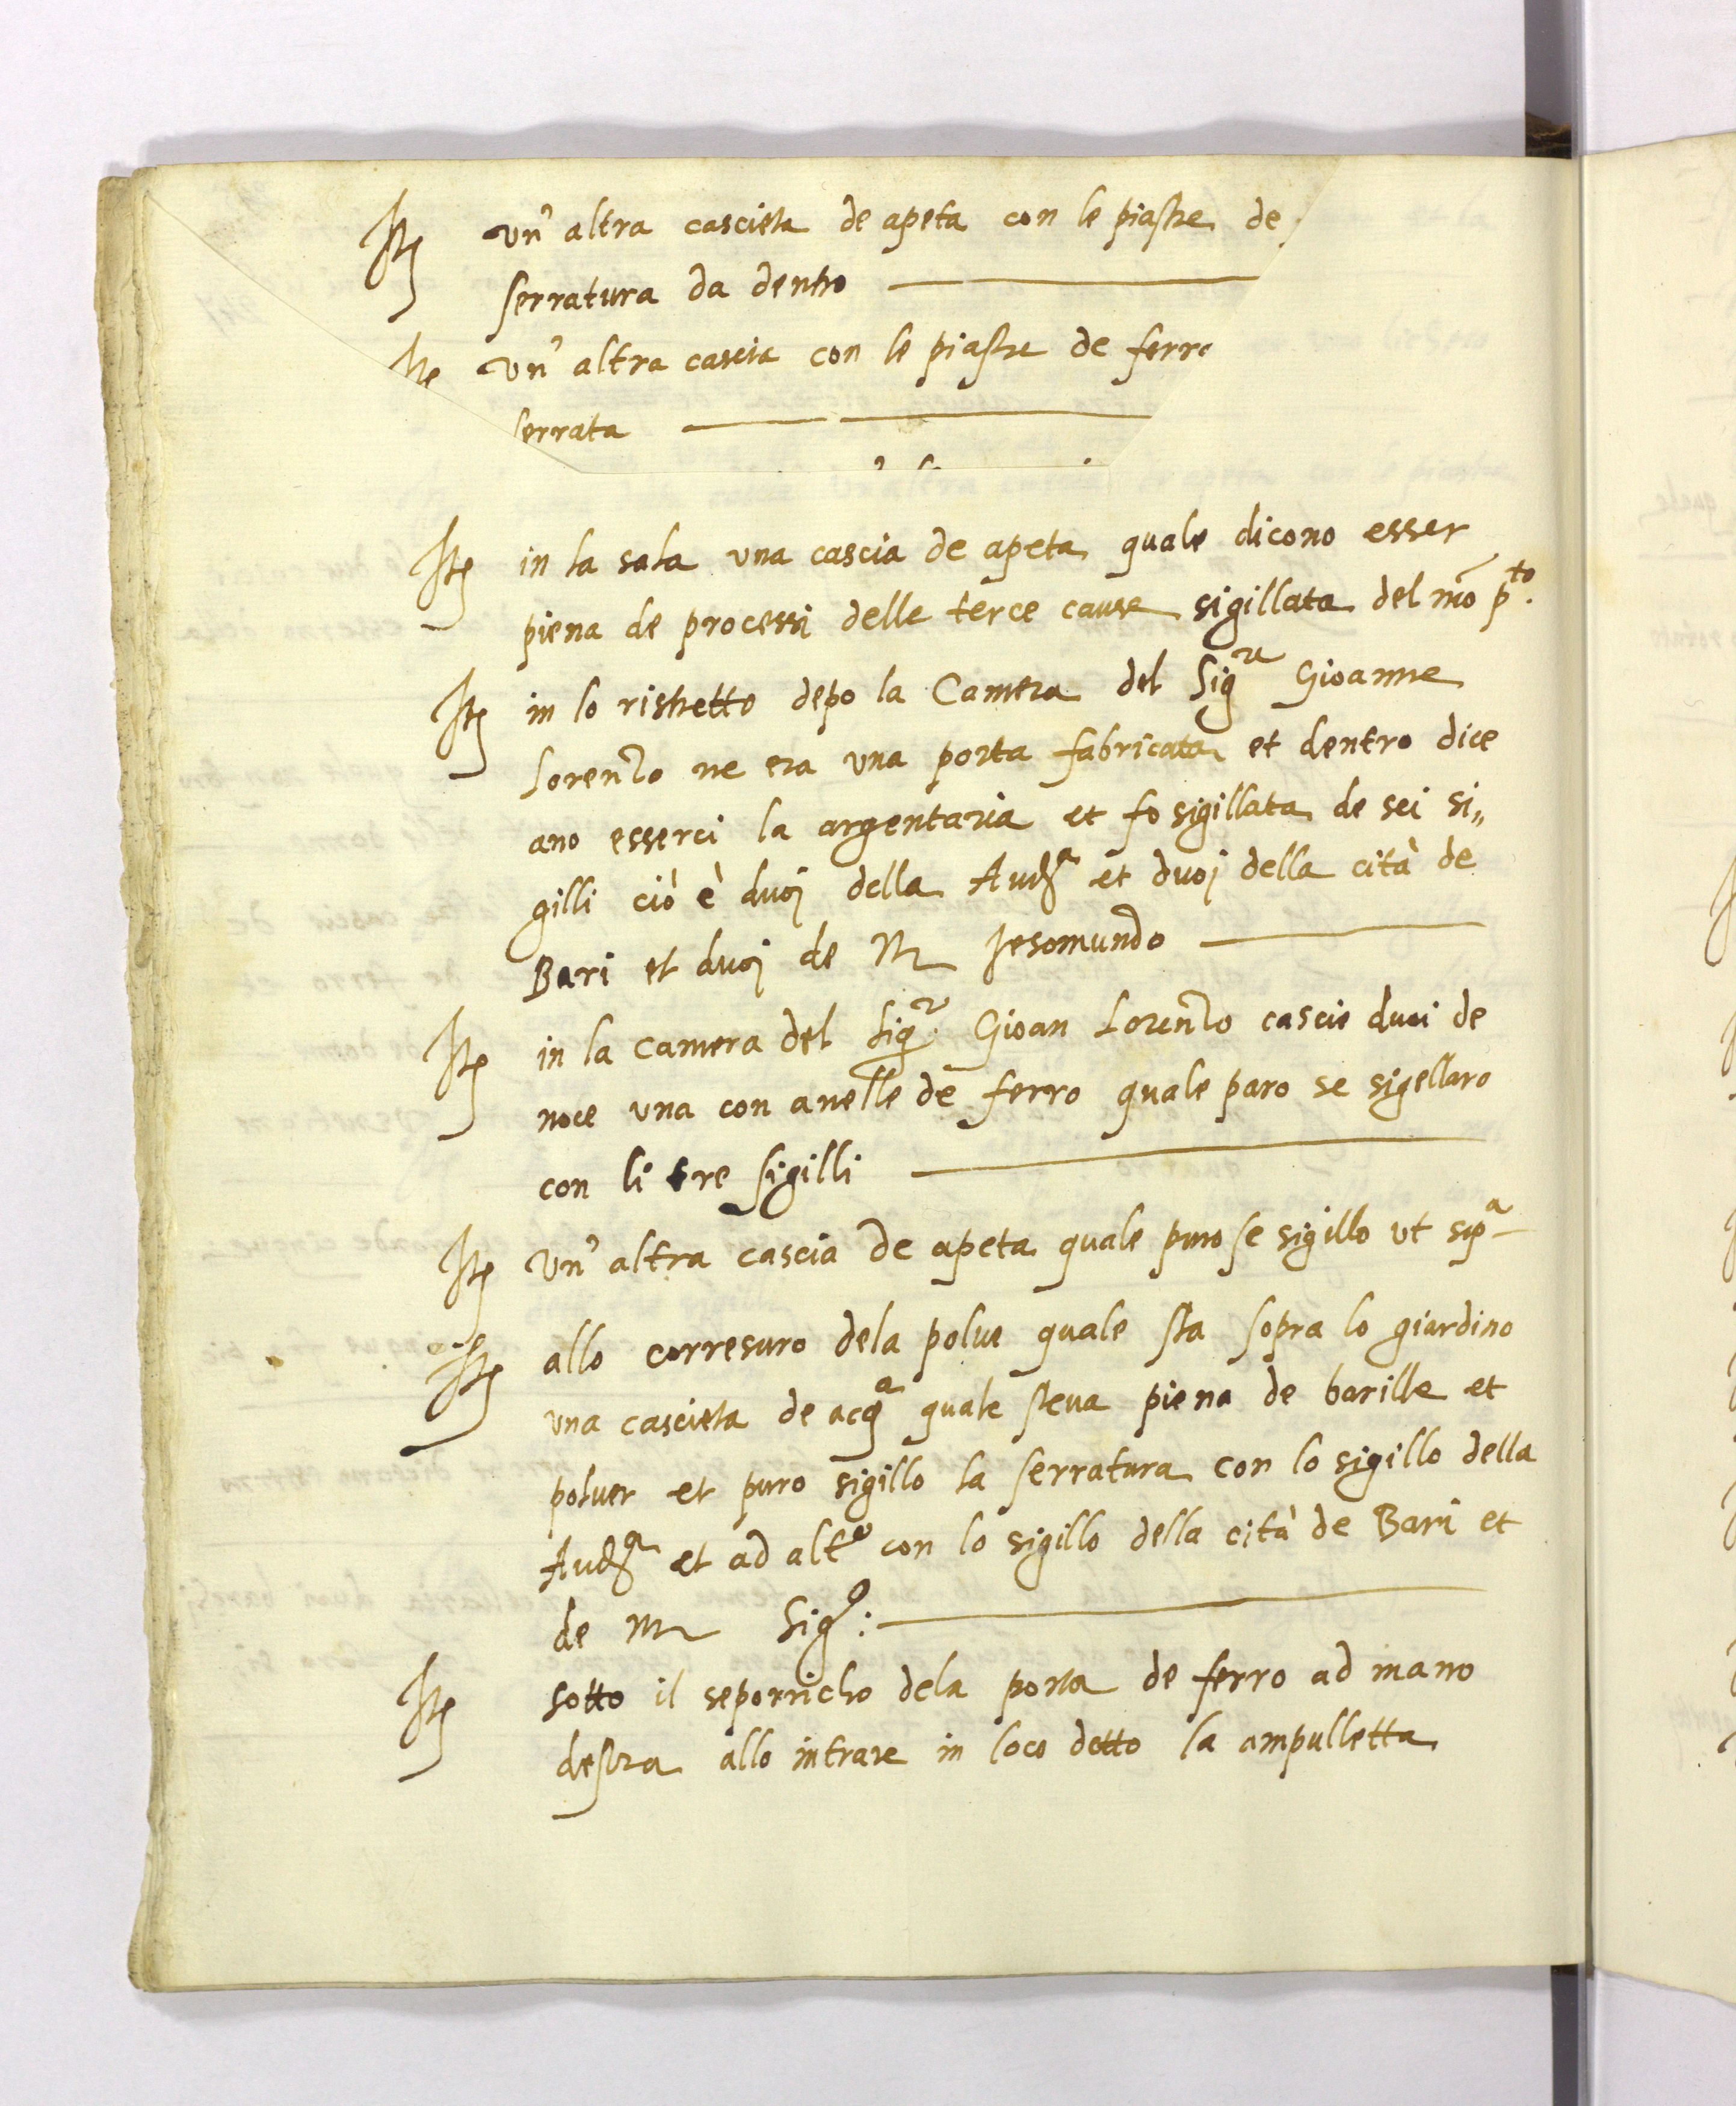 Itē un' altra cascietta de apeta con le piastre de
serratura da dentro
Ite un' altra cascia con le piastre de ferro
serrata
Itē in la sala una cascia de apeta quale dicono esser
piena de processi delle terce cause sigillata del mō p.to
Itē in lo ristretto depo la Camera del Sig.re Gioanne
Lorenzo ne era una porta fabricata et dentro dice
ano esserci la argentaria et fo sigillata de sei si„
gilli ciò è duoj della Aud.a et duoj della cità de
Bari et duoj de M Jesomundo
Itē in la camera del Sig.r Gioan Lorenzo cascie duoi de
noce una con anelle de ferro quale paro se sigellaro
con li tre sigilli
Itē Un' altra cascia de apeta quale puro se sigillo ut sup.a
Itē allo corresuro dela polue quale sta sopra lo giardino
una cascietta de acq.a quale steua piena de barille et
poluer et puro sigillo la serratura con lo sigillo della
Aud.a et ad alt.o con lo sigillo della cità de Bari et
de M Sig.o:
Itē sotto il seporricho dela porta de ferro ad mano
destra allo intrare in loco detto la ampulletta